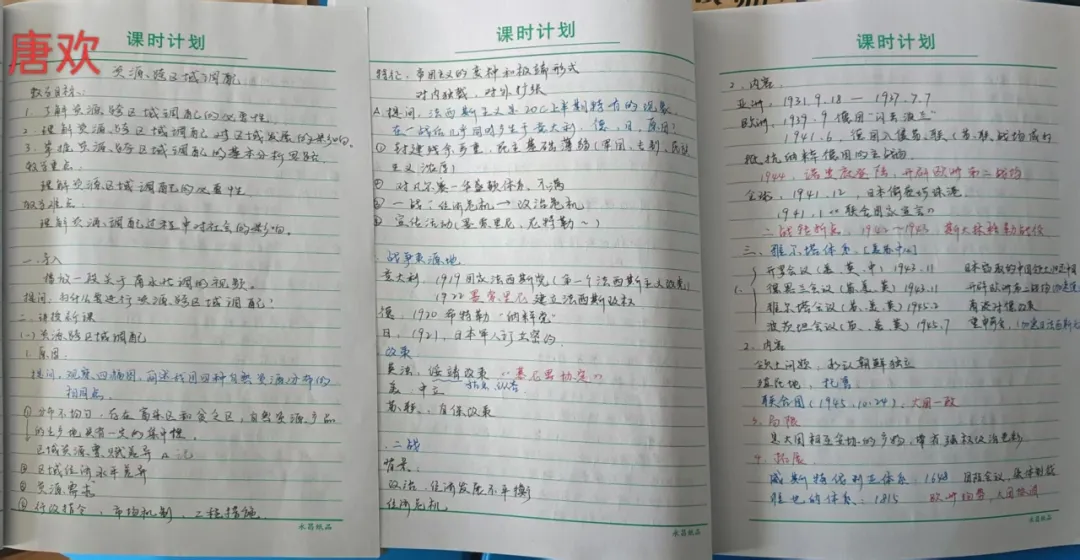 唐欢
课时计划
资源跨区域调配
教学目标:
1. 了解资源跨区域调配的必要性
2. 理解资源跨区域调配对区域发展的影响
3. 掌握资源跨区域调配的基本分析思路
教学重点
理解资源区域调配的必要性
教学难点
理解资源调配过程中对社会的影响.
一. 导入
播放一段关于南水北调的视频.
提问, 为什么要进行资源跨区域调配?
二. 讲授新课
(一) 资源跨区域调配
1. 原因
提问, 观察四幅图, 阐述找回四种自然资源分布的
相同点.
① 分布不均匀, 存在富集区和贫乏区, 自然资源产品
的生产也具有一定的集中性.
区域资源禀赋差异
② 区域经济水平差异
③ 资源需求
④ 行政指令, 市场机制, 工程措施.
永昌纸品
课时计划
特征, 帝国主义的变种和极端形式
对内独裁, 对外扩张
提问, 法西斯主义是20C上半期特有的现象
在一战后几乎同时产生于意大利, 德, 日, 原因?
① 封建残余严重, 民主基础薄弱(军国、专制、民族
主义浓厚)
② 对凡尔赛—华盛顿体系, 不满
③ 一战: 经济危机 → 政治危机
④ 宣传活动(墨索里尼, 希特勒~)
战争策源地
意大利, 1919 国家法西斯党(第一个法西斯主义政党)
1922 墨索里尼 建立法西斯政权
德, 1920 希特勒 "纳粹党"
日, 1921, 日本军人订立密约
政策
英法, 绥靖政策 "慕尼黑协定"
美, 中立
苏联, 自保政策
二. 二战
背景,
政治, 经济发展不平衡
经济危机,
永昌纸品
课时计划
2. 内容
亚洲, 1931.9.18 — 1937.7.7
欧洲, 1939.9 德国"闪击波兰"
1941.6. 德国入侵苏联(苏联战场成为
抵抗纳粹德国的主战场
1944, 诺曼底登陆, 开辟欧洲第二战场
全球, 1941.12, 日本偷袭珍珠港
1942.1《联合国家宣言》
二战转折点, 1942—1943 斯大林格勒战役
三. 雅尔塔体系
1. 开罗会议(美. 英. 中) 1943.11
德黑兰会议(苏. 美. 英) 1943.11 开辟欧洲第二战场
雅尔塔会议(苏. 美. 英) 1945.2
波茨坦会议(苏. 美. 英) 1945.7
2. 内容
领土问题, 承认朝鲜独立
殖民地, 托管
联合国(1945.10.24), 大国一致
3. 局限
是大国相互妥协的产物, 带有强权政治色彩
4. 拓展
威斯特伐利亚体系, 1648
维也纳体系, 1815 欧洲均势, 大国协调
永昌纸品